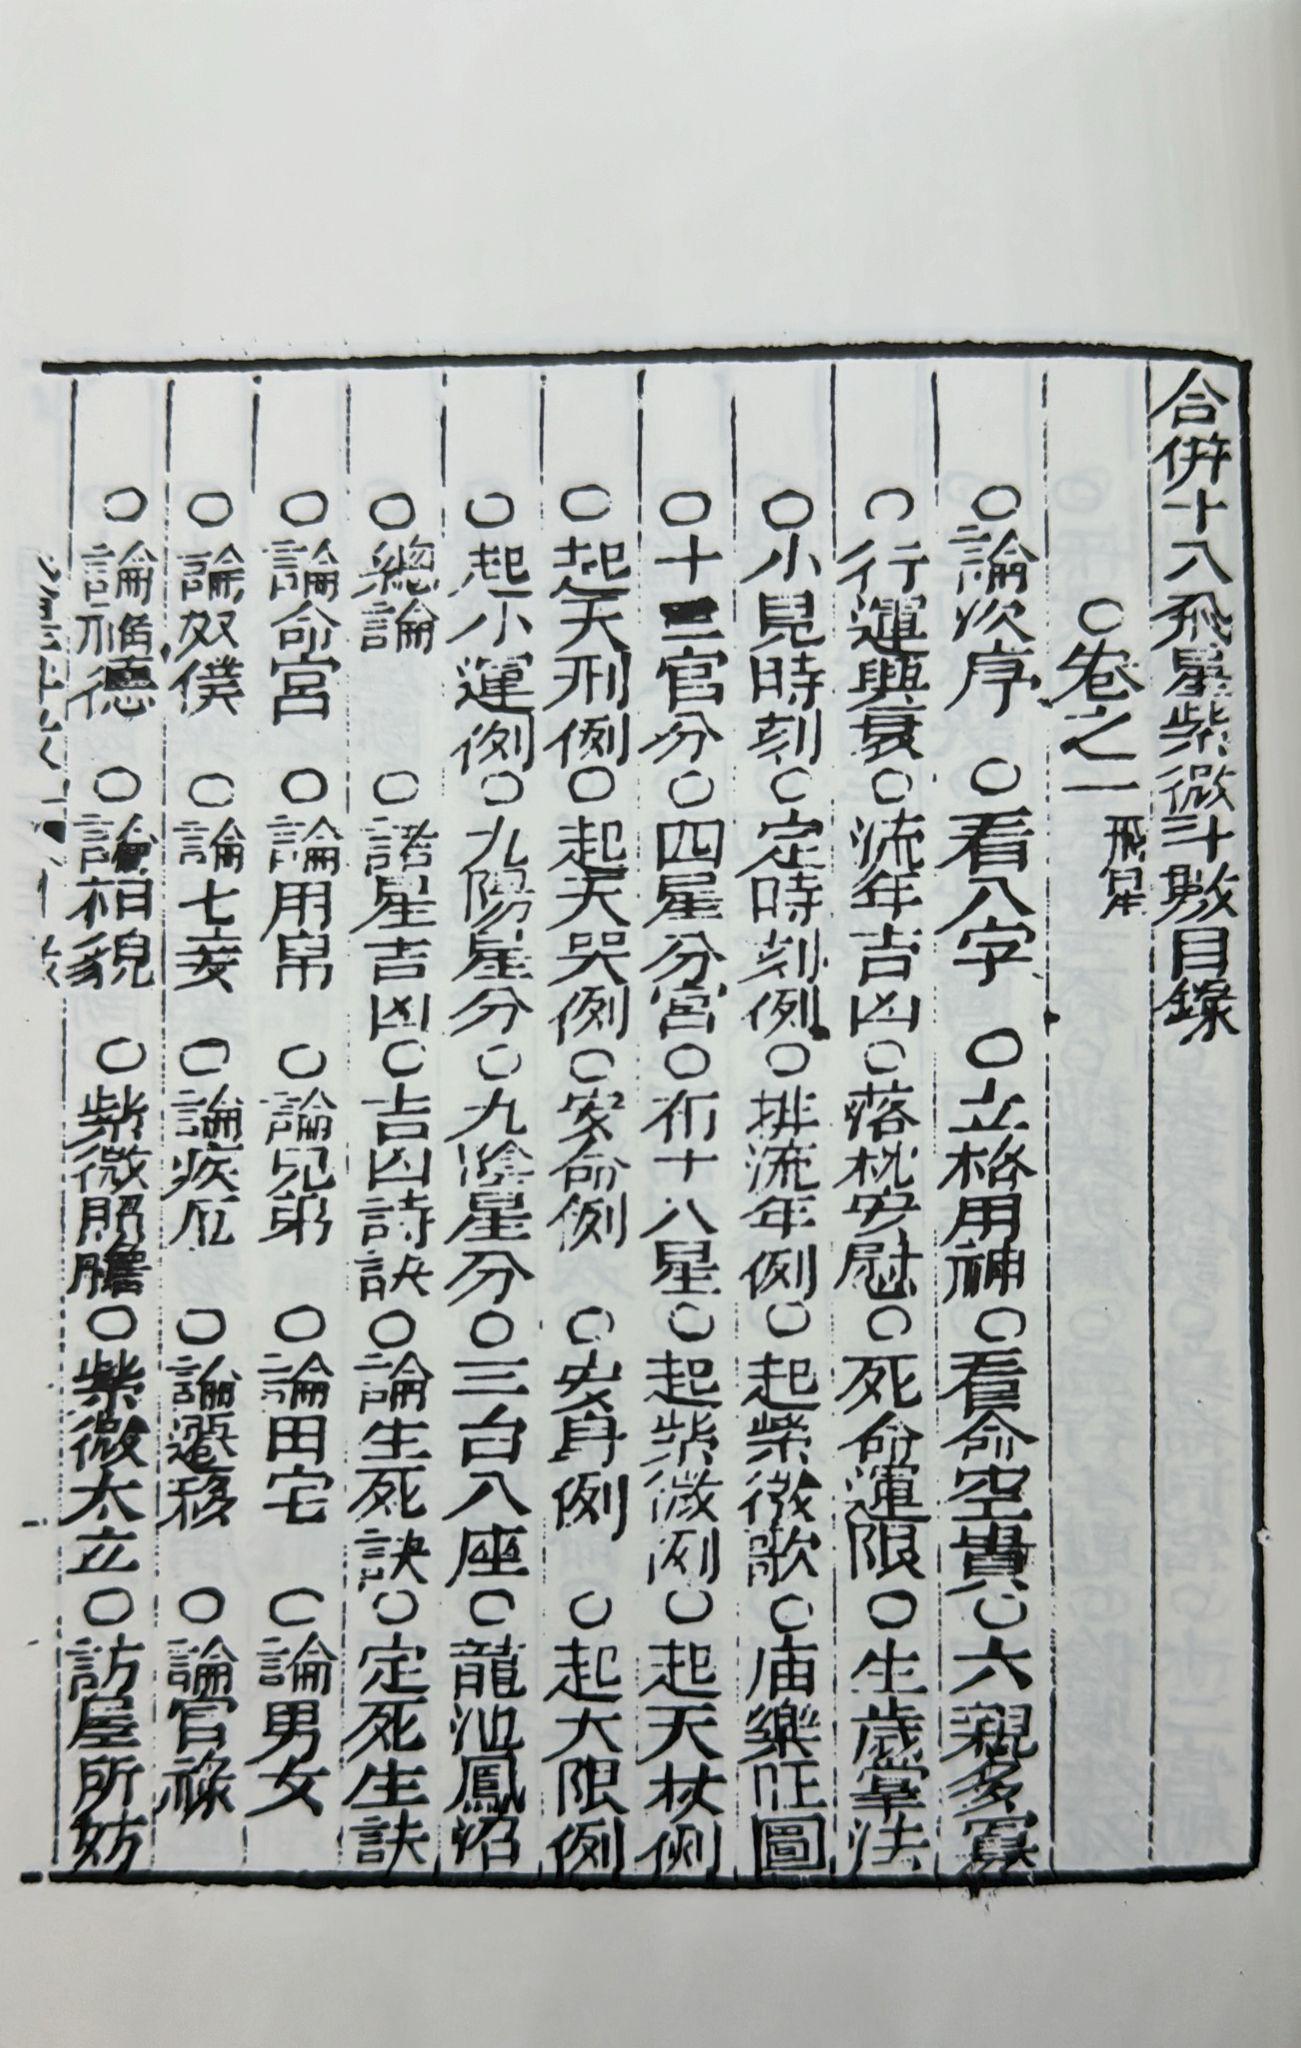 合併十八飛星紫微斗数目錄
○卷之一 飛星
○論次序 ○看八字 ○立格用神 ○看命空貴 ○六親多寡
○行運興衰 ○流年吉凶 ○落枕安慰 ○死命運限 ○生歲掌法
○小見時刻 ○定時刻例 ○排流年例 ○起紫微歌 ○庙樂旺圖
○十二官分 ○四星分宮 ○布十八星 ○起紫微例 ○起天杖例
○起天刑例 ○起天哭例 ○安命例 ○安身例 ○起大限例
○起小運例 ○九陽星分 ○九陰星分 ○三台八座 ○龍池鳳沼
○總論 ○諸星吉凶 ○吉凶詩訣 ○論生死訣 ○定死生訣
○論命宮 ○論用帛 ○論兄弟 ○論田宅 ○論男女
○論奴僕 ○論七妾 ○論疾厄 ○論遷移 ○論官祿
○論福德 ○論相貌 ○紫微照膽 ○紫微太立 ○訪屋所妨